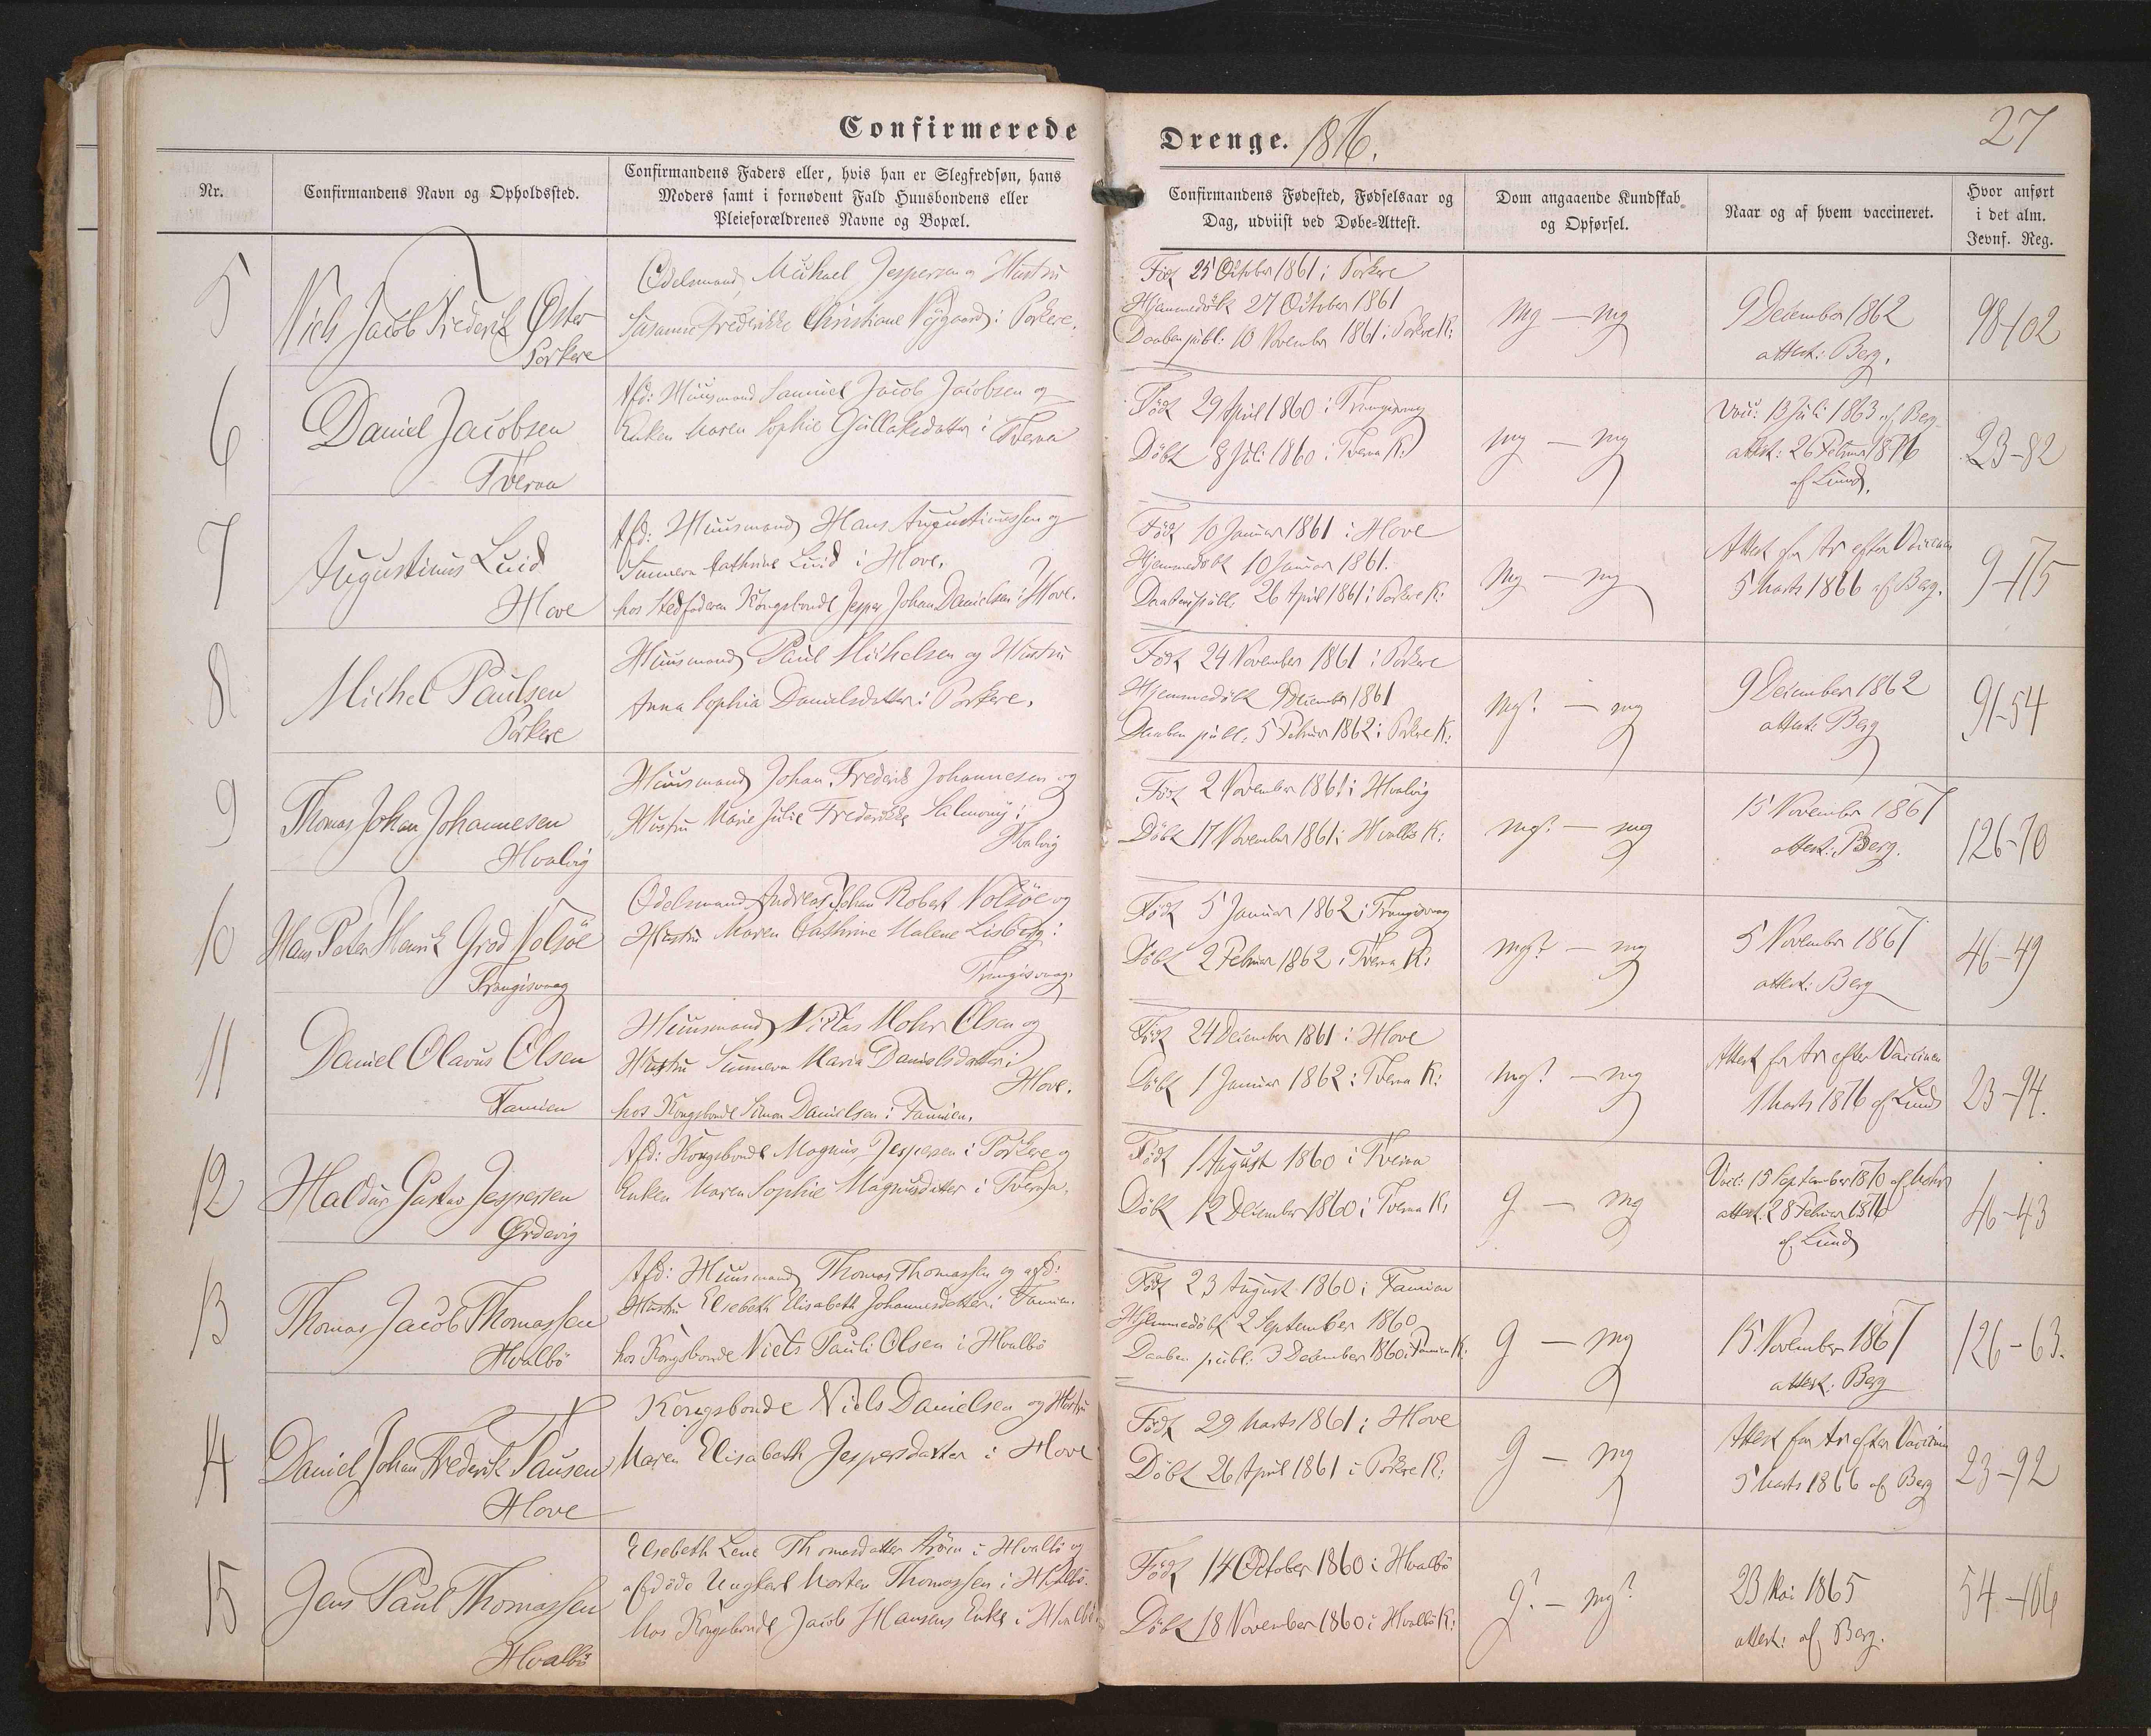 Confirmerede
Drenge. 1876.
27
Nr.
Confirmandens Navn og Opholdssted.
Confirmandens Faders eller, hvis han er Slegfredsøn, hans
Moders samt i fornødent Fald Huusbondens eller
Pleieforældrenes Navne og Bopæl.
Confirmandens Fødested, Fødselsaar og
Dag, udviist ved Døbe-Attest.
Dom angaaende Kundskab
og Opførsel.
Naar og af hvem vaccineret.
Hvor anført
i det alm.
Jevnf. Reg.
5
Niels Jacob Frederik Øster
Porkere
Odelsmand Michael Jespersen og Hustru
Susanne Frederikke Christiane Nygaard i Porkere.
Født 25 October 1861 i Porkere
Hjemmedøbt 27 October 1861
Daaben publ: 10 November 1861 i Porkere K:
mg — mg
9 December 1862
attest: Berg.
98-102
6
Daniel Jacobsen
Tveraa
Afd: Huusmand Samuel Jacob Jacobsen og
Enken Maren Sophie Gullaksdatter i Tveraa
Født 29 April 1860 i Trangisvaag
Døbt 8 Juli 1860 i Tveraa K:
mg — mg
Vacc: 13 Juli 1863 af Berg
attest: 26 Februar 1876
af Lund.
23-82
7
Augustinus Luid
Hove
Afd: Huusmand Hans Augustinussen og
Sunneva Cathrine Luid i Hove.
hos Stedfaderen Kongsbonde Jesper Johan Danielsen i Hove.
Født 10 Januar 1861 i Hove
Hjemmedøbt 10 Januar 1861.
Daaben publ: 26 April 1861 i Porkere K:
mg — mg
Attest for Ar efter Vaccinen
5 Marts 1866 af Berg.
9-175
8
Michel Paulsen
Porkere
Huusmand Paul Michelsen og Hustru
Anna Sophia Danielsdatter i Porkere.
Født 24 November 1861 i Porkere
Hjemmedøbt 9 December 1861
Daaben publ: 5 Februar 1862 i Porkere K:
mg? — mg
9 December 1862
attest: Berg
91-54
9
Thomas Johan Johannesen
Hvalvig
Huusmand Johan Frederik Johannesen og
Hustru Marie Julie Frederikke Salmony i
Hvalvig
Født 2 November 1861 i Hvalvig
Døbt 17 November 1861 i Hvalbø K:
mg? — mg
15 November 1867
attest: Berg.
126-70
10
Hans Peter Henrik Grod Nolsøe
Trangisvaag
Odelsmand Andreas Johan Robert Nolsøe og
Hustru Maren Cathrine Malene Lisberg i
Trangisvaag.
Født 5 Januar 1862 i Trangisvaag
Døbt 2 Februar 1862 i Tveraa K:
mg? — mg
5 November 1867
attest: Berg
46-49
11
Daniel Olavus Olsen
Famien
Huusmand Niclas Mohr Olsen og
Hustru Sunneva Maria Danielsdatter i
Hove.
hos Kongsbonde Simon Danielsen i Famien.
Født 24 December 1861 i Hove
Døbt 1 Januar 1862 i Tveraa K:
mg? — mg
Attest for Ar efter Vaccinen
1 Marts 1876 af Lund
23-94.
12
Haldur Gustav Jespersen
Ørdevig
Afd: Kongsbonde Magnus Jespersen i Porkere og
Enken Maren Sophie Magnusdatter i Tveraa.
Født 1 August 1860 i Tveraa
Døbt 12 December 1860 i Tveraa K:
g — mg
Vacc: 15 September 1870 af
attest. 28 Februar 1876
af Lund
46-43
13
Thomas Jacob Thomassen
Hvalbø
Afd: Huusmand Thomas Thomassen og afd:
Hustru Elsebeth Elisabeth Johannesdatter i Famien.
hos Kongsbonde Niels Pauli Olsen i Hvalbø
Født 23 August 1860 i Famien
Hjemmedøbt 2 September 1860
Daaben publ: 3 December 1860 i Famien K:
g — mg
15 November 1867
attest: Berg
126-63.
14
Daniel Johan Frederik Pausen
Hove
Kongsbonde Niels Danielsen og Hustru
Maren Elisabeth Jespersdatter i Hove
Født 29 Marts 1861 i Hove
Døbt 26 April 1861 i Porkere K:
g — mg
Attest for Ar efter Vaccinen
5 Marts 1866 af Berg
23-92
15
Jens Paul Thomassen
Hvalbø
Elsebeth Lene Thomasdatter i Hvalbø og
afdøde Ungkarl Morten Thomassen i Hvalbø.
hos Kongsbonde Jacob Hansens Enke i Hvalbø
Født 14 October 1860 i Hvalbø
Døbt 18 November 1860 i Hvalbø K:
g? — mg?
23 Mai 1865
attest: af Berg.
54-106